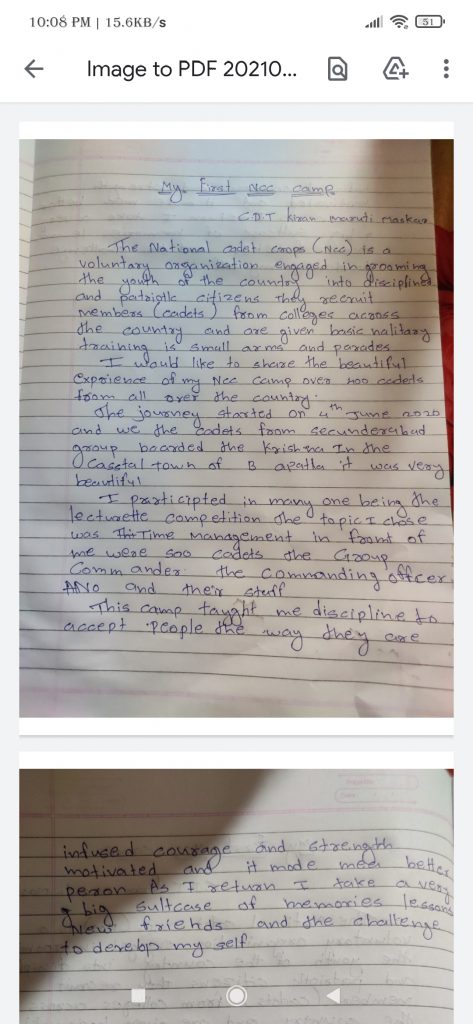 10:08 PM | 15.6KB/s
51
Image to PDF 20210...
My First Ncc camp
CDT kiran maruti maskar
The National cadet corps (Ncc) is a
voluntary organization engaged in grooming
the youth of the country into disciplined
and patriotic citizens they recruit
members (cadets) from colleges across
the country and are given basic military
training is small arms and parades
I would like to share the beautiful
Expoience of my Ncc camp over cadets
from all over the country.
The journey started on 4th June 2020
and we the cadets from secunderabad
group boarded the Krishna In the
Ocasetal town of B apatla it was very
beautiful
I participted in many one being the
lecturette competition the topic I chose
was Time Management in front of
me were 500 cadets the Group
Comm ander the commanding officer
ANO and their staff
This camp taught me discipline to
accept people the way they are
infused courage and strength
motivated and it made me better
person As I return I take a very
big suitcase of memories lessons
New friends and the challenge
to develop my self